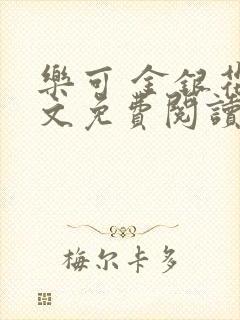 樂可 金銀花
文免費閱讀
梅尔卡多